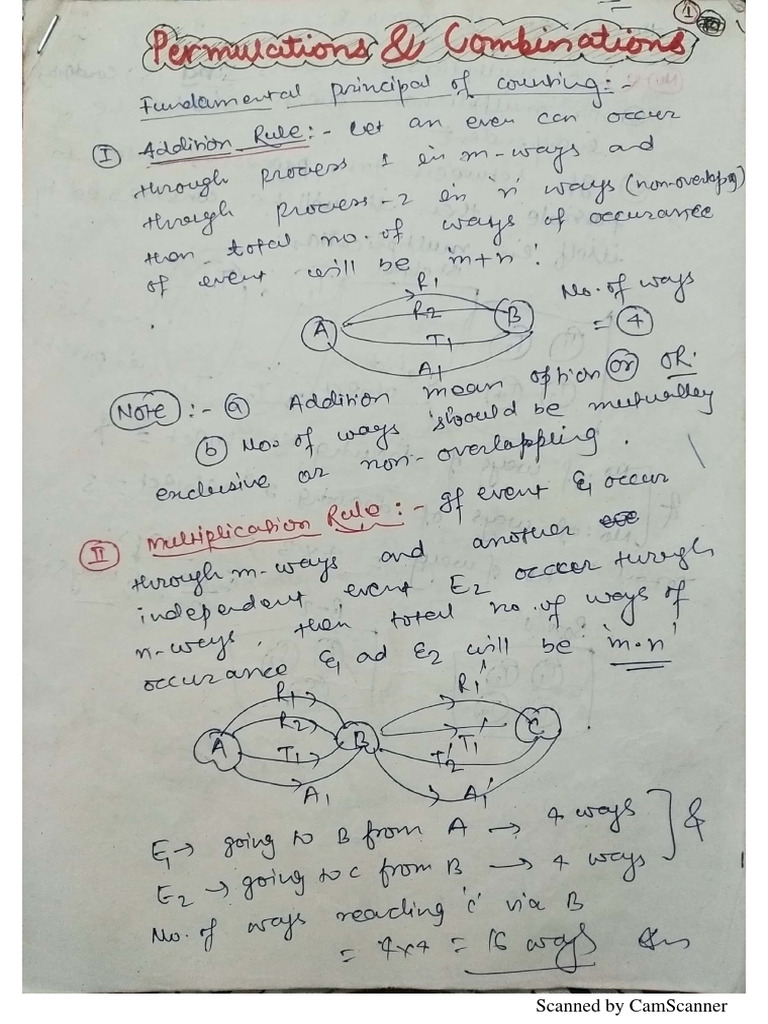 1
Permulations & Combinations
Fundamental principal of counting:-
I Addition Rule:- Let an even can occur
through process 1 in m-ways and
through process-2 in 'n' ways (non-overlapg)
then total no. of ways of occurance
of event will be 'm+n'.
R1
R2
A B
T1
A1
No. of ways
= 4
Note :- a Addition mean option or OR.
b No. of ways should be mutualley
exclusive or non-overlappling.
II Multiplication Rule:- If event E1 occur
through m-ways and another
independent event E2 occer through
n-ways, then total no. of ways of
occurance E1 ad E2 will be 'm.n'
R1 R1'
R2
A B C
T1 T1'
T2'
A1 A1'
E1→ going to B from A → 4 ways
&
E2 → going to C from B → 4 ways
No. of ways reaching 'c' via B
= 4×4 = 16 ways Ans
Scanned by CamScanner